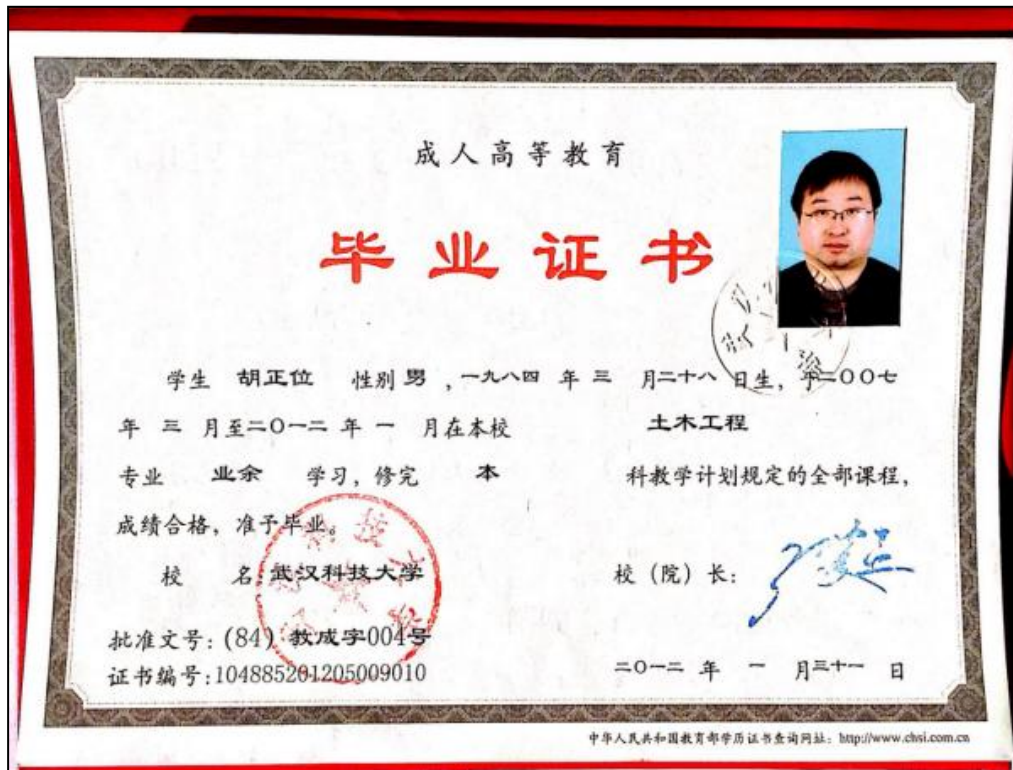 成人高等教育
毕业证书
学生 胡正位 性别 男 ,一九八四 年 三 月二十八 日生, 于二〇〇七
年 三 月至二〇一二 年 一 月在本校 土木工程
专业 业余 学习, 修完 本 科教学计划规定的全部课程,
成绩合格, 准予毕业。
校 名: 武汉科技大学 校(院)长:
批准文号: (84) 教成字004号
证书编号: 104885201205009010 二〇一二 年 一 月三十一 日
中华人民共和国教育部学历证书查询网址: http://www.chsi.com.cn